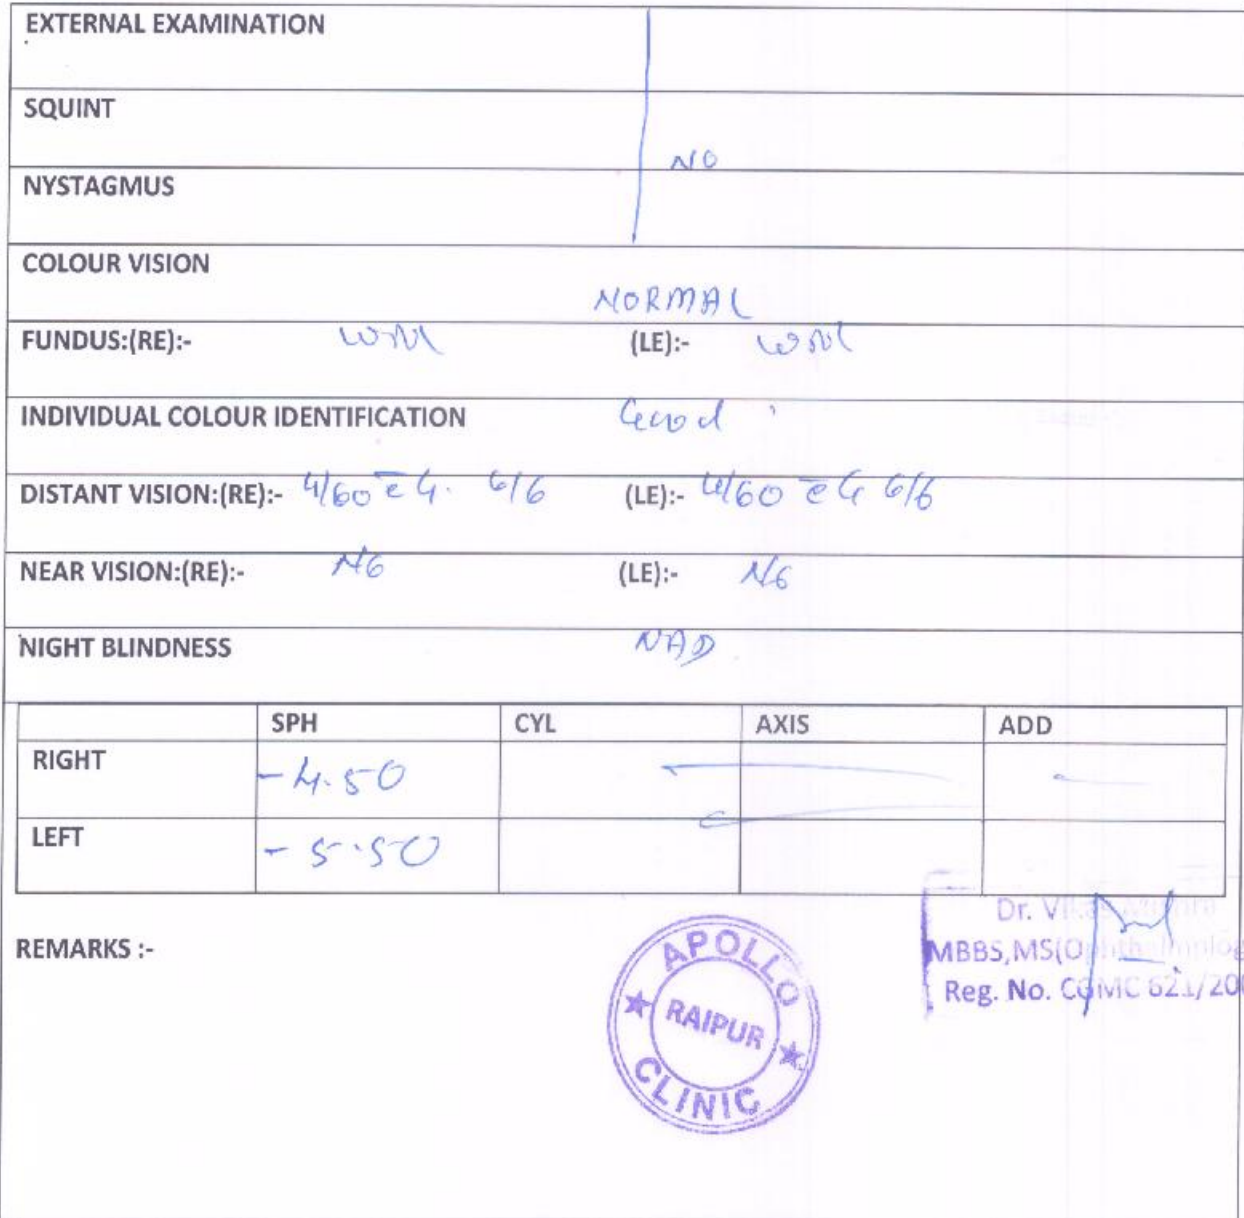 EXTERNAL EXAMINATION
SQUINT
NO
NYSTAGMUS
COLOUR VISION
NORMAL
FUNDUS:(RE):- WNL (LE):- WNL
INDIVIDUAL COLOUR IDENTIFICATION Good
DISTANT VISION:(RE):- 4/60 c̄ G. 6/6 (LE):- 4/60 c̄ G 6/6
NEAR VISION:(RE):- N6 (LE):- N6
NIGHT BLINDNESS NAD
SPH CYL AXIS ADD
RIGHT -4.50 — —
LEFT -5.50 —
REMARKS :-
APOLLO
RAIPUR
CLINIC
Dr.
MBBS,MS(Ophthalmolog
Reg. No. CGMC 621/20